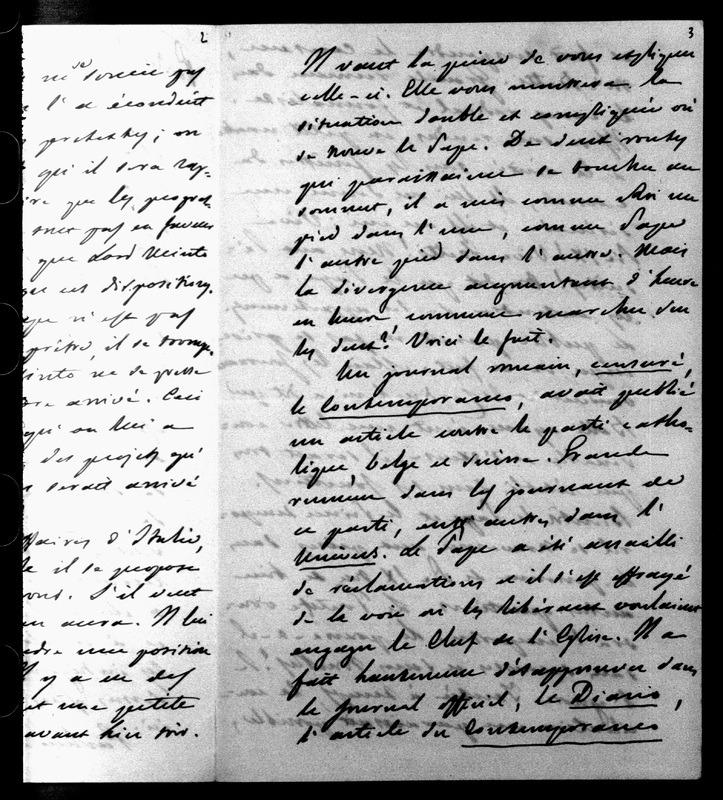 2
ne se soucie pas
l'a éconduit
protestés ; on
qui il sera rap-
que les progrès
sont pas en faveur
que Lord Minto
ses dispositions.
n'est pas
prêtre, il se
Minto ne se presse
arrivé. Ceci
qu'on lui a
des projets qu'
serait arrivé
affaires d'Italie,
il se propose
S'il veut
aura. Il lui
une position
Il y a eu des
une petite
avant hier soir.
3
Il vaut la peine de vous expliquer
celle-ci. Elle vous montrera la
situation double et compliquée où
se trouve le Pape. De deux routes
qui paraissaient se toucher au
sommet, il a mis comme Roi un
pied dans l'une, comme Pape
l'autre pied dans l'autre. Mais
la divergence augmentant d'heure
en heure comment marcher sur
les deux ? Voici le fait.
Un journal romain, censuré,
le Contemporaneo, avait publié
un article contre le parti catho-
lique, belge et suisse. Grande
rumeur dans les journaux de
ce parti, entr'autres dans l'
Univers. Le Pape a été assailli
de réclamations et il s'est effrayé
de la voie où les libéraux voulaient
engager le Chef de l'Eglise. Il a
fait hautement désapprouver dans
le journal officiel, le Diario,
l'article du Contemporaneo